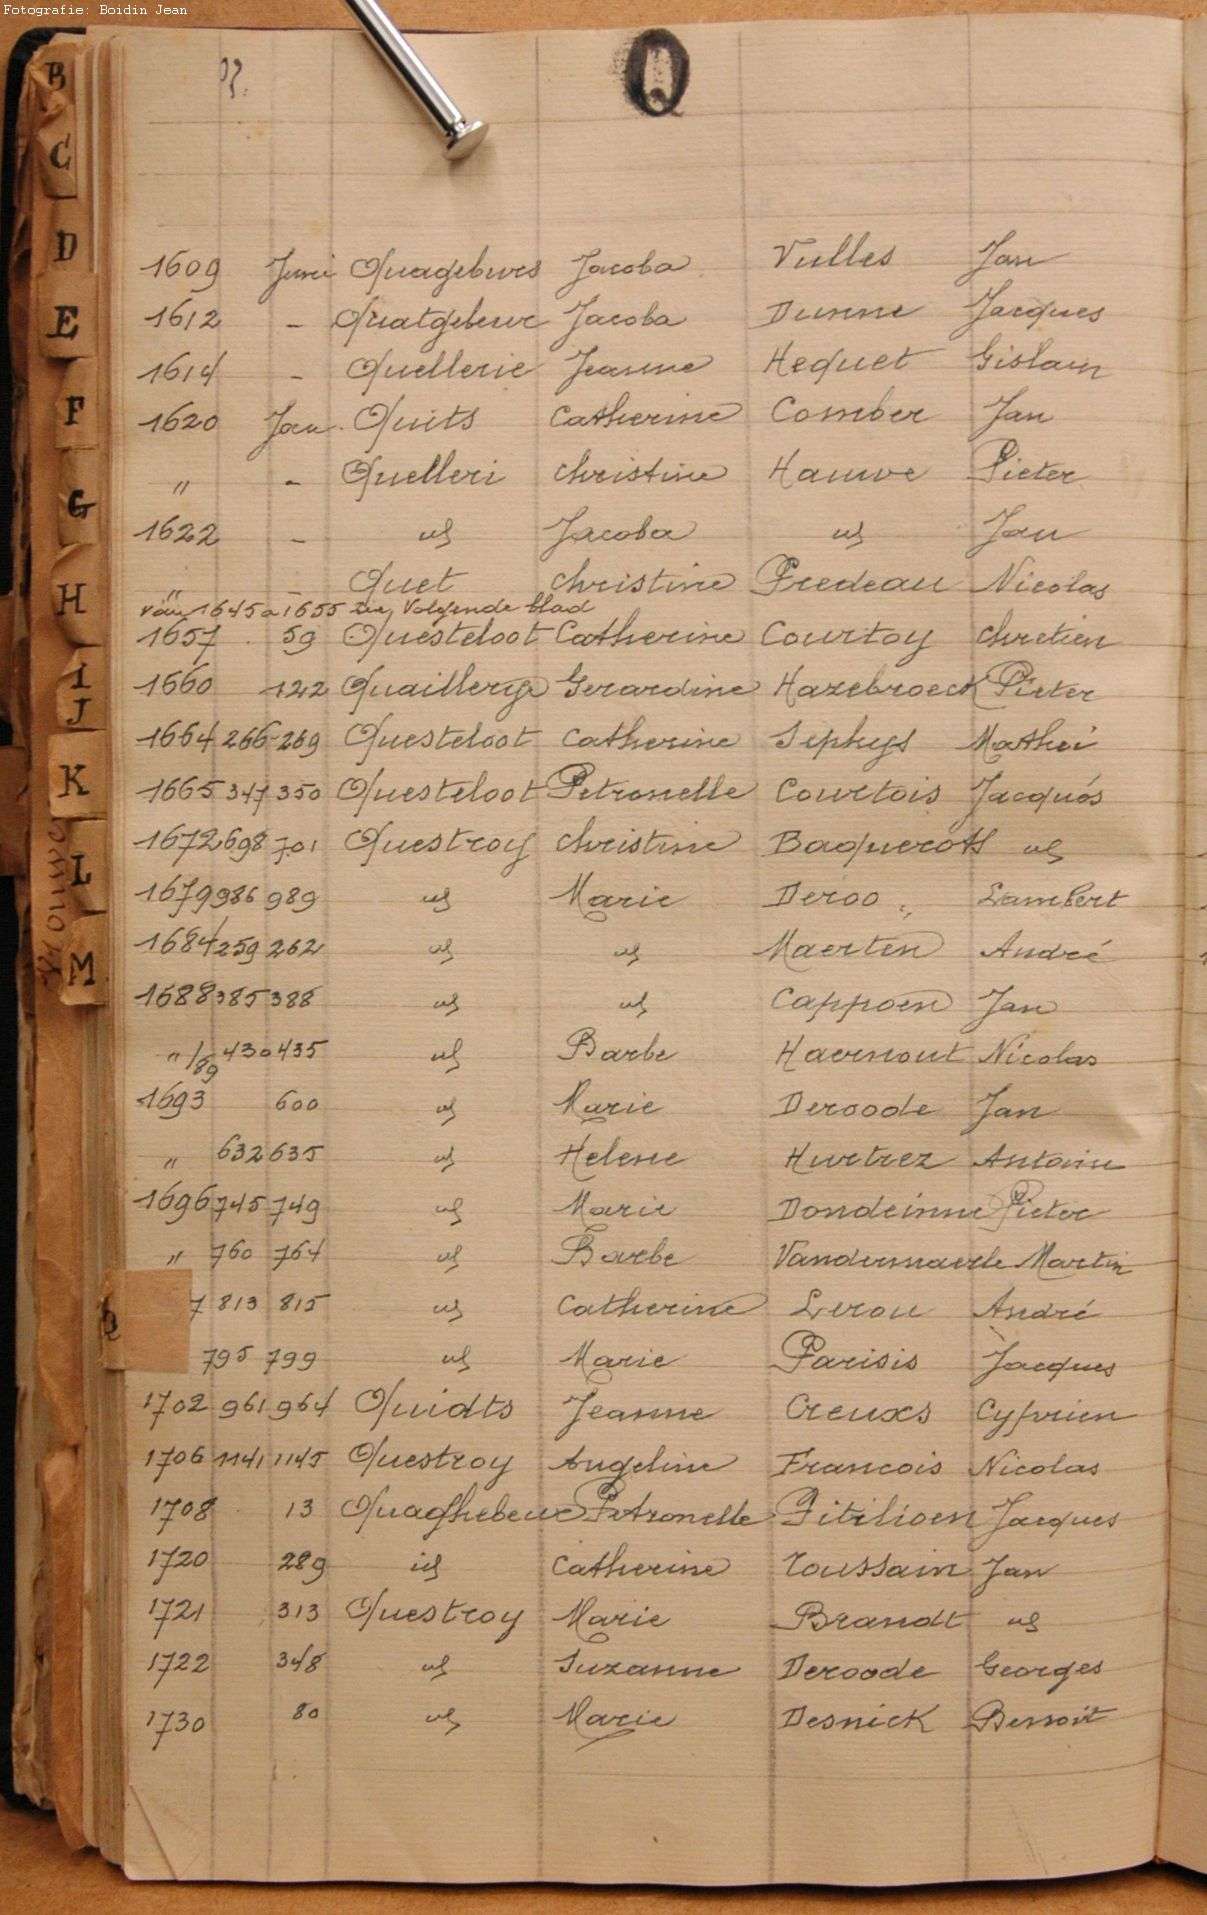 Fotografie: Boidin Jean
Q
B
C
D
E
F
G
H
I
J
K
L
M
1609 Juni Quageburs Jacoba Vulles Jan
1612 - Quatgebeur Jacoba Dunne Jacques
1614 - Quellerie Jeanne Hequet Gislain
1620 Jan. Quits Catherine Comber Jan
" - Quelleri Christine Hauwe Pieter
1622 - id Jacoba id Jan
" - Quet Christine Predeau Nicolas
van 1645 a 1655 zie Volgende blad
1657 59 Questeloot Catherine Courtoy Chretien
1660 122 Quaillerye Gerardine Hazebroeck Pieter
1664 266-269 Questeloot Catherine Sephys Mathei
1665 347 350 Questeloot Petronelle Courtois Jacques
1672 698 701 Questroy Christine Baqueroth id
1679 986 989 id Marie Deroo Lambert
1684 259 262 id id Maerten André
1688 385 388 id id Cappoen Jan
" /89 430 435 id Barbe Haernout Nicolas
1693 600 id Marie Deroode Jan
" 632 635 id Helene Hurtrez Antoine
1696 745 749 id Marie Dondeinne Pieter
" 760 764 id Barbe Vandermaerle Martin
7 813 815 id Catherine Lerou André
795 799 id Marie Parisis Jacques
1702 961 964 Quidts Jeanne Creuxs Cyprien
1706 1141 1145 Questroy Angeline Francois Nicolas
1708 13 Quaghebeur Petronelle Pitilioen Jacques
1720 289 id Catherine Toussain Jan
1721 313 Questroy Marie Brandt id
1722 348 id Suzanne Deroode Georges
1730 80 id Marie Desnick Benoit